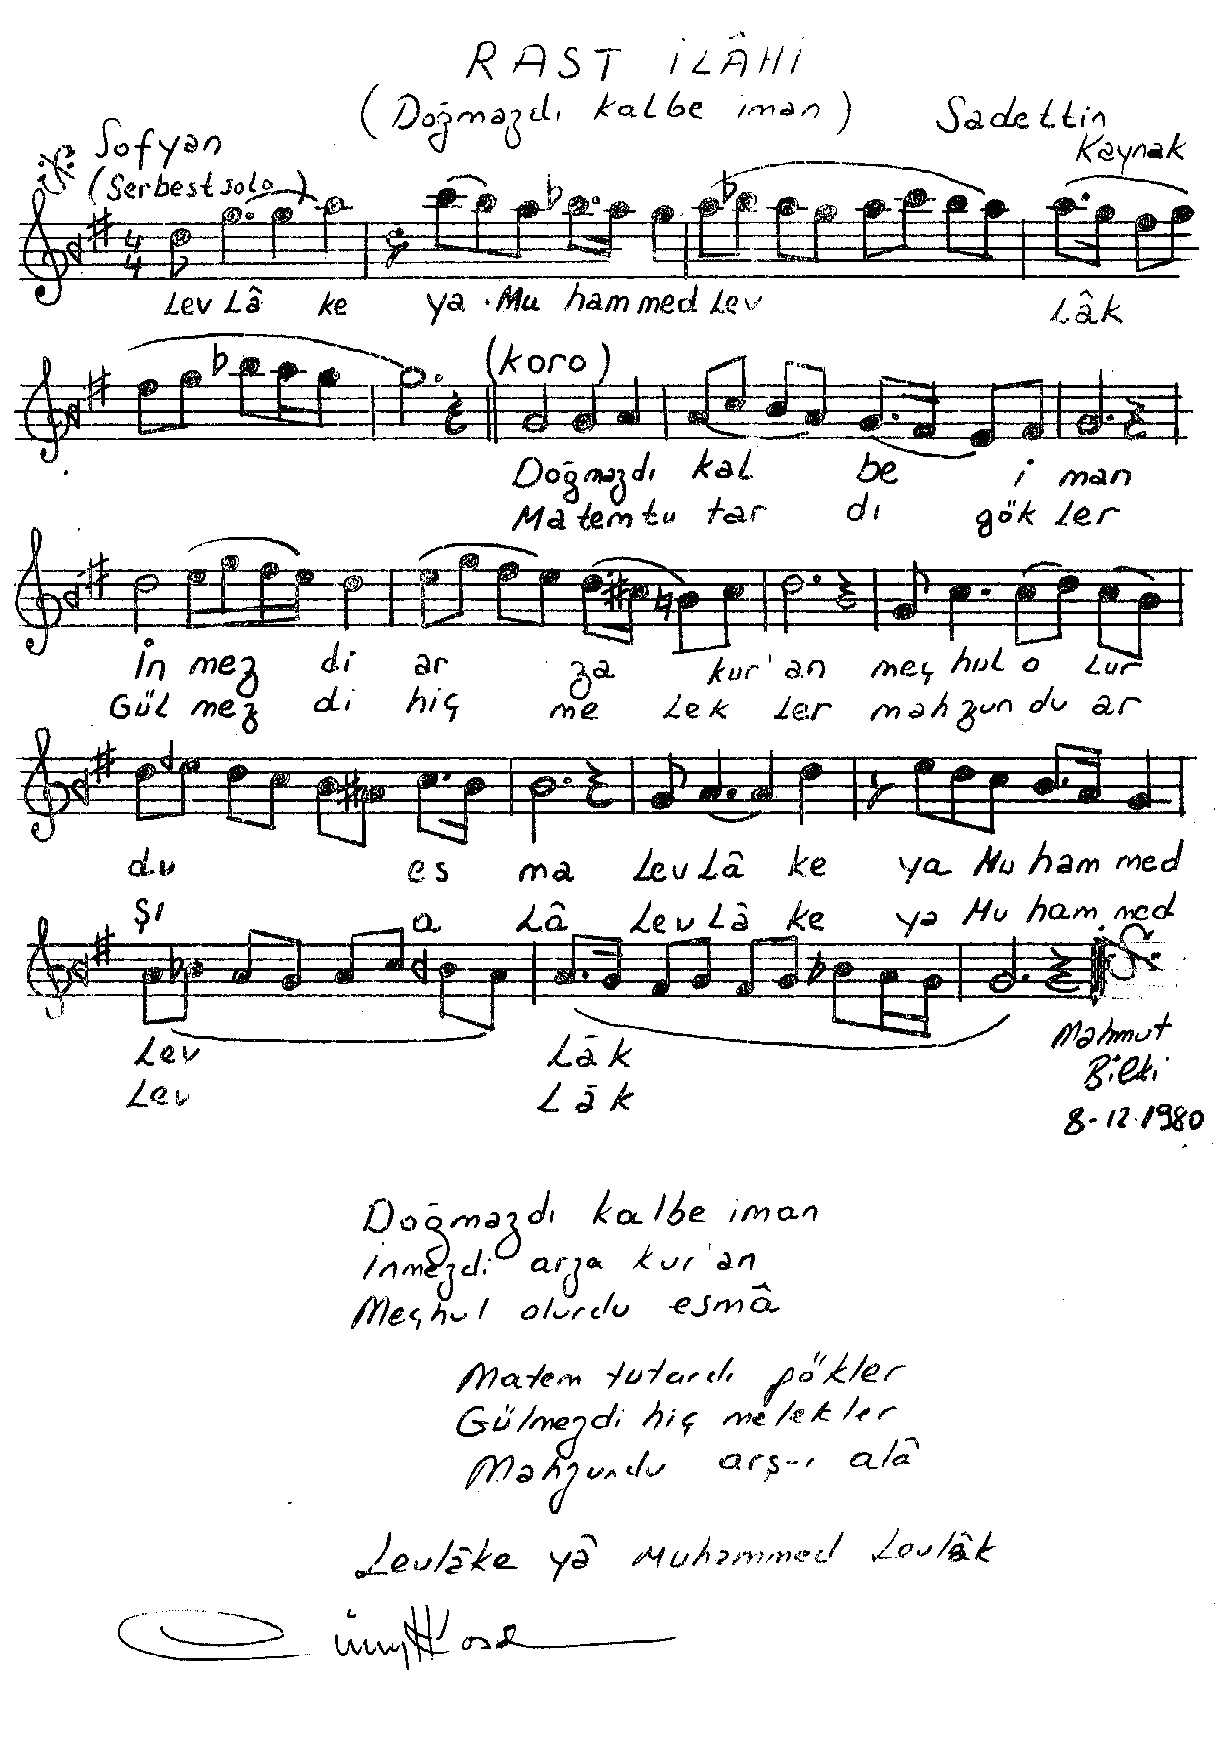 RAST İLÂHİ
(Doğmazdı kalbe iman)
Sadettin
Kaynak
Sofyan
(Serbest solo)
4
4
Lev Lâ ke ya Mu ham med Lev Lâk
(koro)
Doğmazdı kal be i man
Matem tu tar dı gök ler
İn mez di ar za kur'an meç hul o lur
Gül mez di hiç me lek ler mahzun du ar
du es ma Lev Lâ ke ya Mu ham med
şı a Lâ Lev Lâ ke ya Mu ham med
Lev Lâk
Lev Lâk
Mahmut
Bilki
8-12-1980
Doğmazdı kalbe iman
İnmezdi arza kur'an
Meçhul olurdu esmâ
Matem tutardı gökler
Gülmezdi hiç melekler
Mahzundu arş-ı alâ
Levlâke yâ Muhammed Levlâk